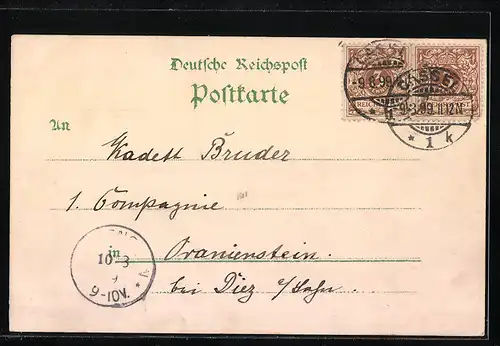 Deutsche Reichspost
Postkarte
An
Kadett Bruder
1. Compagnie
in Oranienstein
bei Diez a/Lahn.
CASSEL
-9.3.99.11-12N
* 1 k
10 3
9-10V.
REICHSPOST